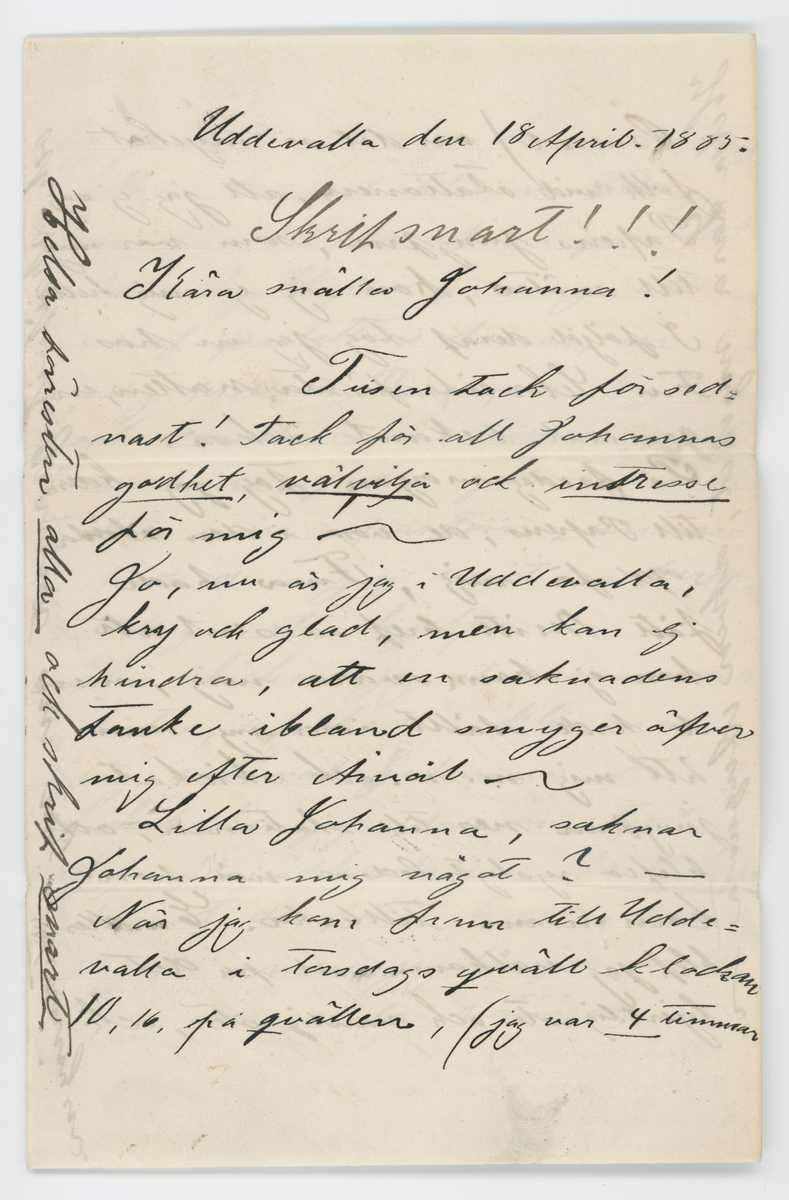 Uddevalla den 18 April. 1885.
Skrif snart! ! !
Kära snälla Johanna!
Tusen tack för sed=
nast! Tack för all Johannas
godhet, välvilja och intresse
för mig!
Jo, nu är jag i Uddevalla,
kry och glad, men kan ej
hindra, att en saknadens
tanke ibland smyger öfver
mig efter Åmål
Lilla Johanna, saknar
Johanna mig något? —
När jag kom fram till Udde=
valla i torsdags qväll klockan
10, 16, på qvällen, (jag var 4 timmar
Helsa
alla och skrif snart